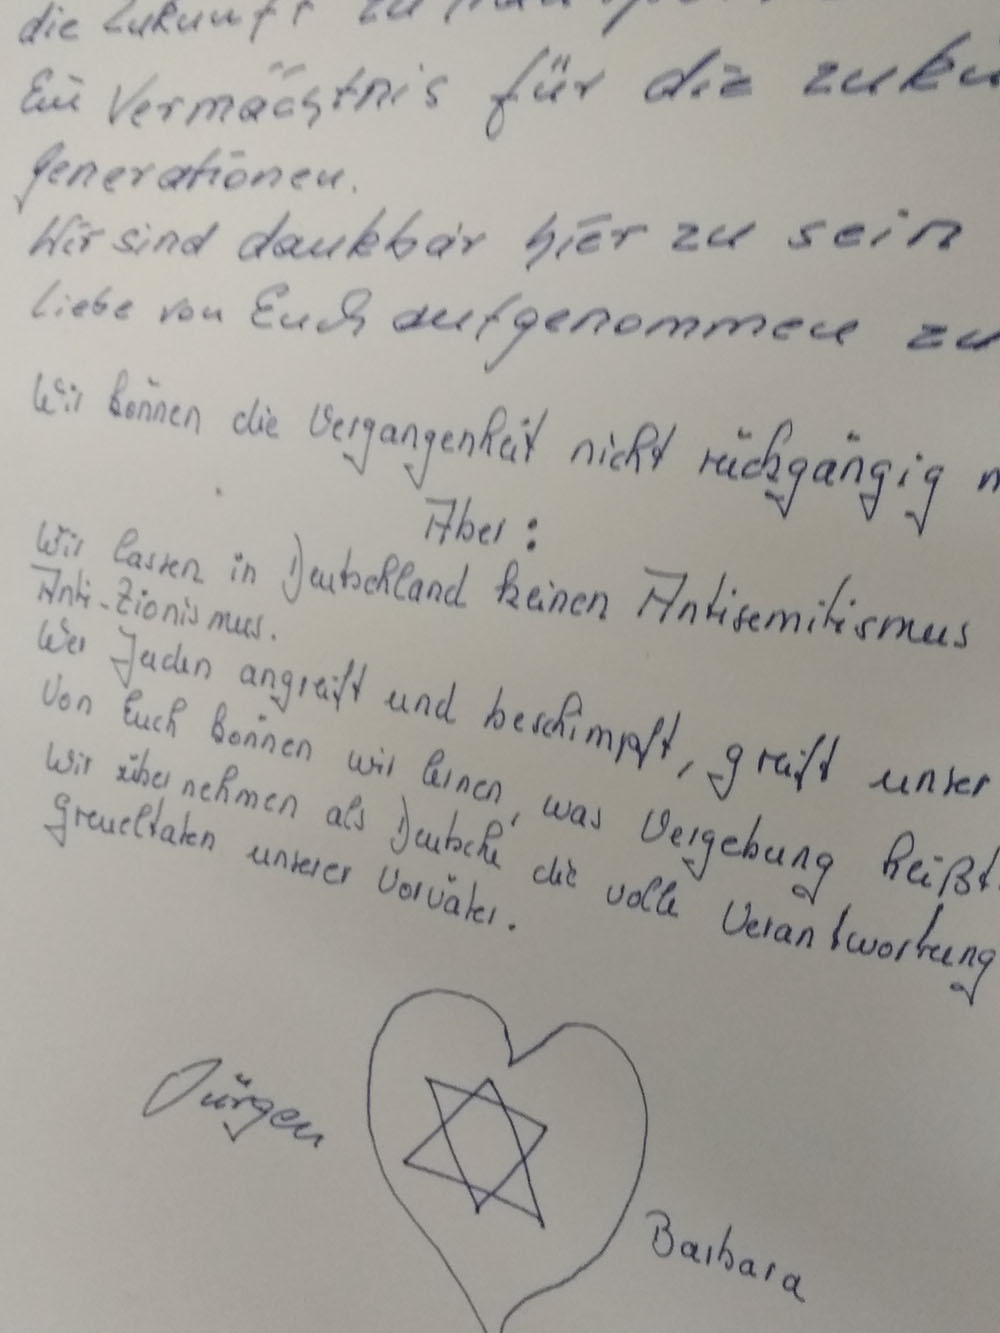 die Zukunft zu
Ein Vermächtnis für die zukü
Generationen.
Wir sind dankbar hier zu sein
Liebe von Euch aufgenommen zu
Wir können die Vergangenheit nicht rückgängig m
Aber:
Wir lassen in Deutschland keinen Antisemitismus
Anti-Zionismus.
Wer Juden angreift und beschimpft, greift unser
Von Euch können wir lernen, was Vergebung heißt.
Wir übernehmen als Deutsche die volle Verantwortung
Greueltaten unserer Vorväter.
Jürgen
Barbara